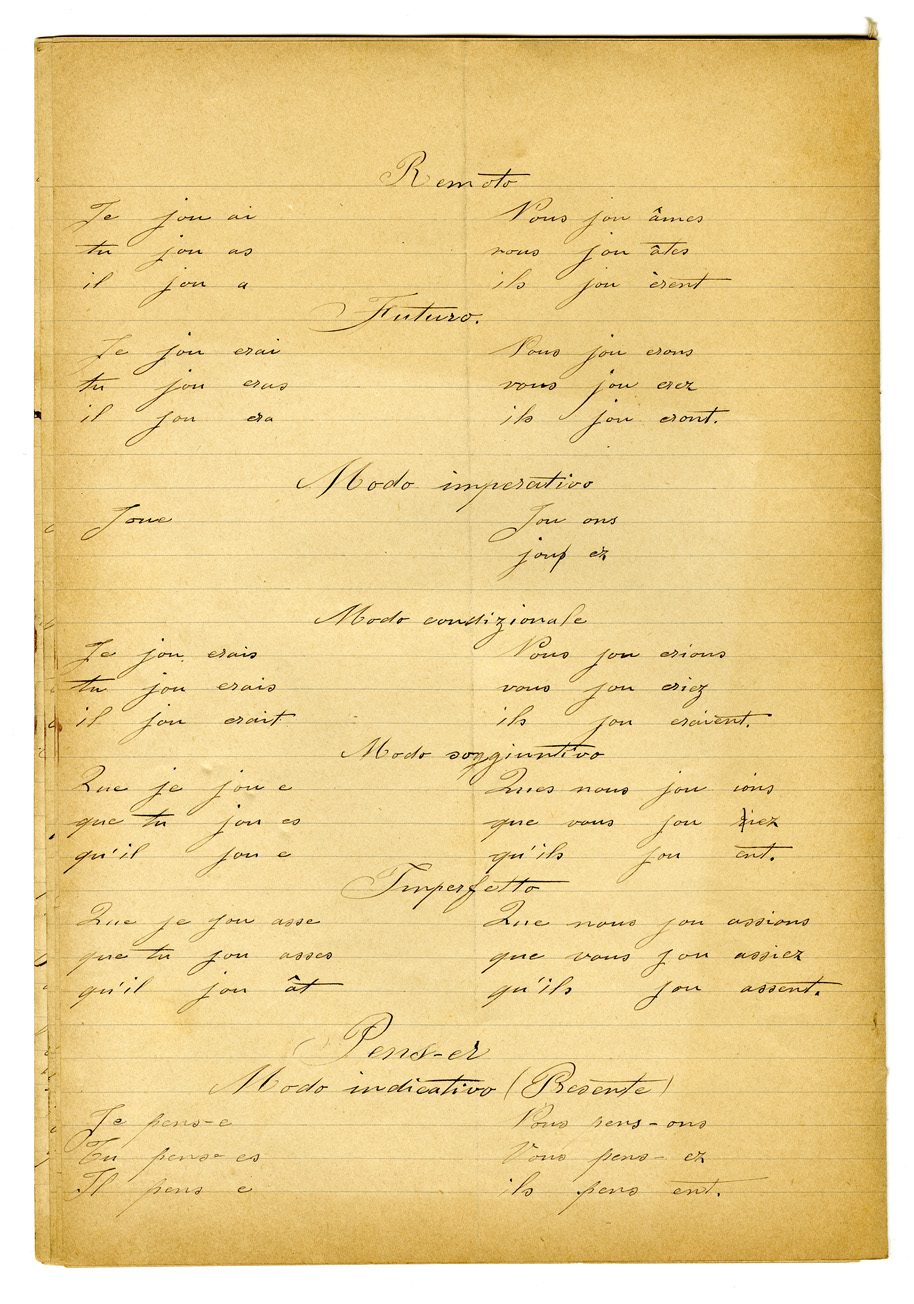 Remoto
Je jou ai Nous jou âmes
tu jou as vous jou âtes
il jou a ils jou èrent
Futuro.
Je jou erai Nous jou erons
tu jou eras vous jou erez
il jou era ils jou eront.
Modo imperativo
Joue Jou ons
jou ez
Modo condizionale
Je jou erais Nous jou erions
tu jou erais vous jou eriez
il jou erait ils jou eraient.
Modo soggiuntivo
Que je jou e Ques nous jou ions
que tu jou es que vous jou iez
qu'il jou e qu'ils jou ent.
Imperfetto
Que je jou asse Que nous jou assions
que tu jou asses que vous jou assiez
qu'il jou ât qu'ils jou assent.
Pens-er
Modo indicativo (Presente)
Je pens-e Nous pens-ons
Tu pens- es Vous pens- ez
Il pens e ils pens ent.